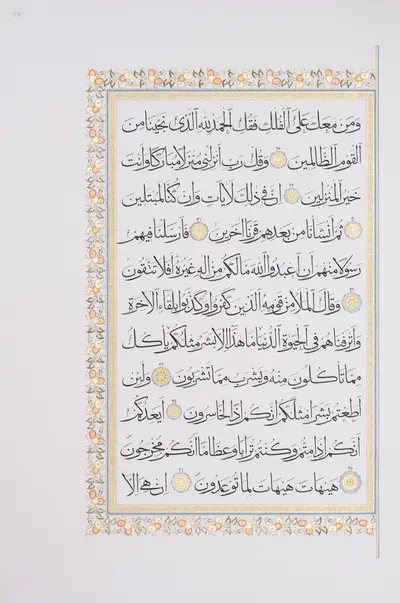 ومن معك على الفلك فقل الحمد لله الذي نجينا من
القوم الظالمين وقل رب أنزلني منزلا مباركا وأنت
خير المنزلين إن في ذلك لآيات وإن كنا لمبتلين
ثم أنشأنا من بعدهم قرنا آخرين فأرسلنا فيهم
رسولا منهم أن اعبدوا الله ما لكم من إله غيره أفلا تتقون
وقال الملأ من قومه الذين كفروا وكذبوا بلقاء الآخرة
وأترفناهم في الحيوة الدنيا ما هذا إلا بشر مثلكم يأكل
مما تأكلون منه ويشرب مما تشربون ولئن
أطعتم بشرا مثلكم إنكم إذا لخاسرون أيعدكم
أنكم إذا متم وكنتم ترابا وعظاما أنكم مخرجون
هيهات هيهات لما توعدون إن هي إلا